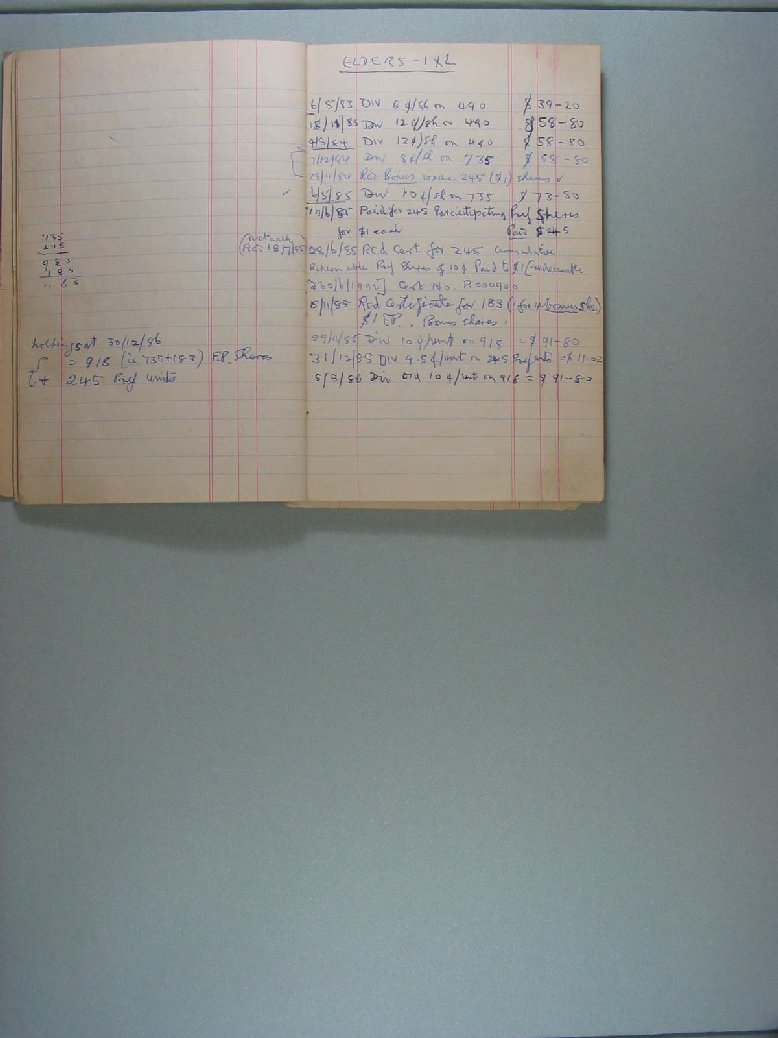 735
245
980
183
1163
holdings at 30/12/86
= 918 (ie 735+183) F.P. Shares
+ 245 Pref units
ELDERS - IXL
6/5/83 Div 8 ¢/sh on 490 $ 39-20
18/11/83 Div 12 ¢/sh on 490 $ 58-80
4/5/84 Div 12 ¢/sh on 490 $ 58-80
7/12/84 Div 8 ¢/sh on 735 $ 58-80
23/11/84 Rcd Bonus issue 245 ($1) shares
6/5/85 Div 10 ¢/sh on 735 $ 73-50
19/6/85 Paid for 245 Participating Pref Shares
for $1 each Paid $245
28/6/85 Rcd Cert for 245 Cumulative
Redeemable Pref Shares of 10¢ Paid to $1 (redeemable
30/6/1992) Cert No. P.000900
15/11/85 Rcd Certificate for 183 (1 for 4 bonus shs)
$1 F.P. Bonus shares.
29/11/85 Div 10 ¢/unit on 918 = $ 91-80
31/12/85 Div 4.5 ¢/unit on 245 Pref units = $ 11-02
5/3/86 Div 10 ¢/unit on 918 = $ 91-80